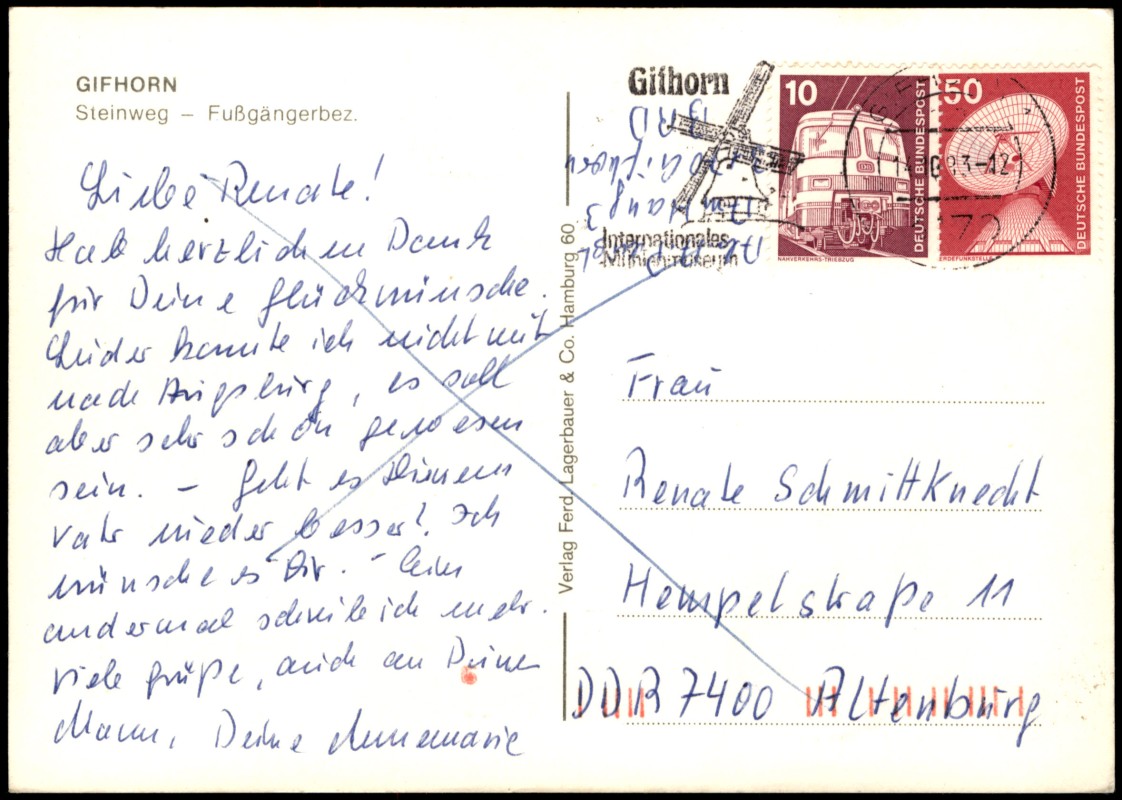 GIFHORN
Steinweg – Fußgängerbez.
Liebe Renate!
Hab herzlichen Dank
für Deine Glückwünsche.
Leider konnte ich nicht mit
nach Augsburg, es soll
aber sehr schön gewesen
sein. – Geht es Deinem
Vatr wieder besser? Ich
wünsche es Dir. – Ein
andermal schreibe ich mehr.
Viele Grüße, auch an Deinen
Mann, Deine Annemarie
Verlag Ferd. Lagerbauer & Co. Hamburg 60
Gifhorn
Internationales
Mühlenmuseum
BRD
Gifhorn
3
10
DEUTSCHE BUNDESPOST
NAHVERKEHRS-TRIEBZUG
50
DEUTSCHE BUNDESPOST
ERDEFUNKSTELLE
83-12
Frau
Renate Schmittknecht
Hempelstraße 11
DDR 7400 Altenburg